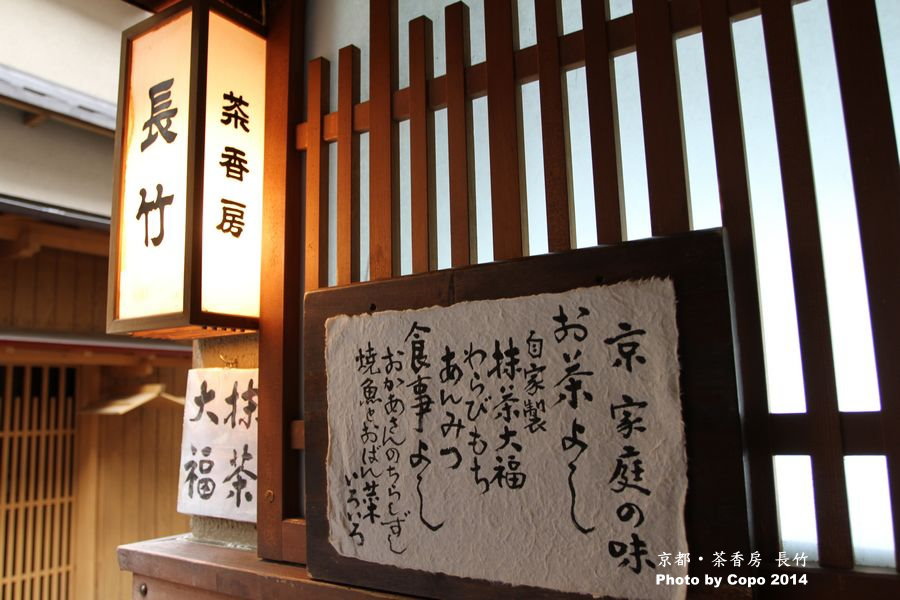 長竹
茶香房
抹茶
大福
京家庭の味
お茶よし
自家製
抹茶大福
わらびもち
あんみつ
食事よし
おかあさんのちらしずし
焼魚とおばん菜
いろいろ
京都・茶香房 長竹
Photo by Copo 2014